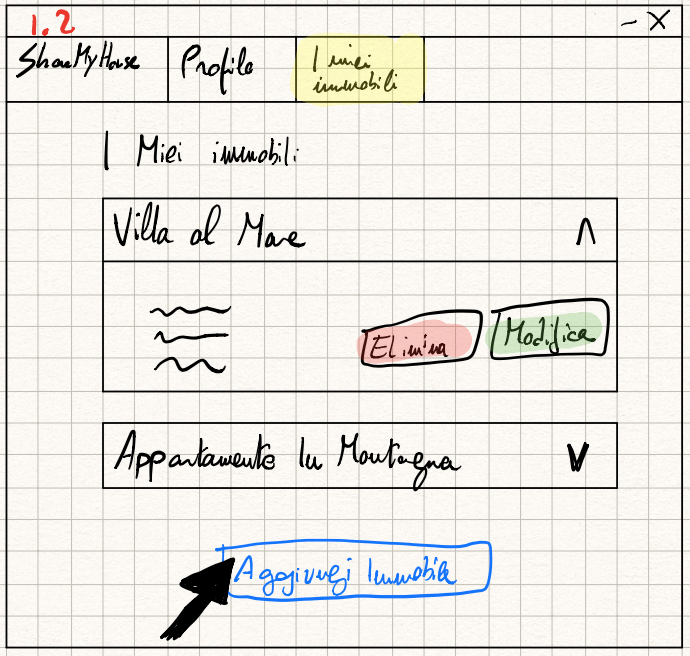 1.2
- X
ShareMyHouse
Profilo
I miei
immobili
I Miei immobili
Villa al Mare
Elimina
Modifica
Appartamento In Montagna
Aggiungi Immobile